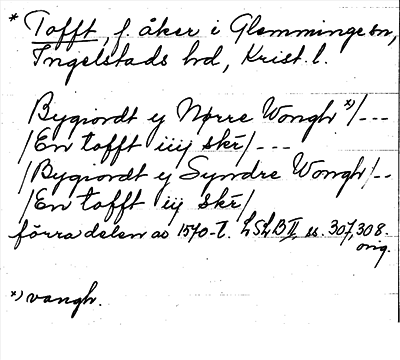 * Tofft, f. åker i Glemminge sn,
Ingelstads hd, Krist. l.
Bygiordt ij Nørre Wongh *)/---
/En tofft iiij skr/---
/Bygiordt ij Syndre Wongh/--
/En tofft iij skr/
förra delen av 1570-t. LSLB II s. 307, 308.
orig.
*) vangh.